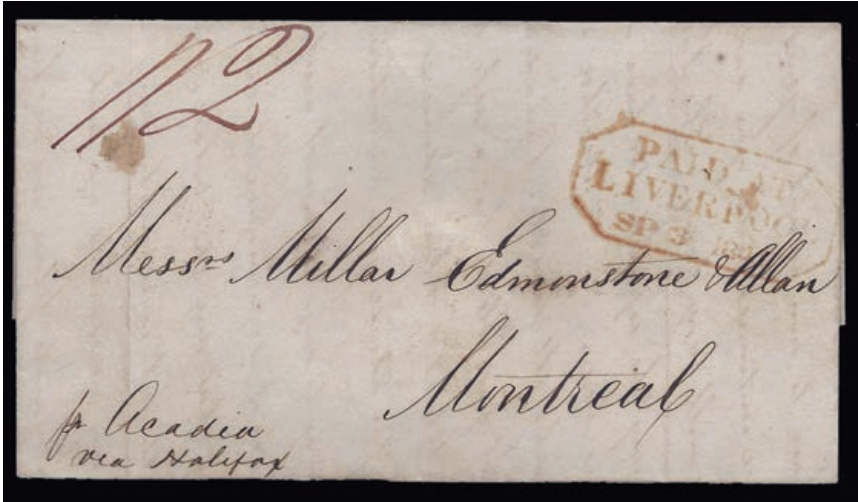 1/2
PAID AT
LIVERPOOL
SP 3
Messrs Millar Edmonstone & Allan
Montreal
pr Acadia
via Halifax